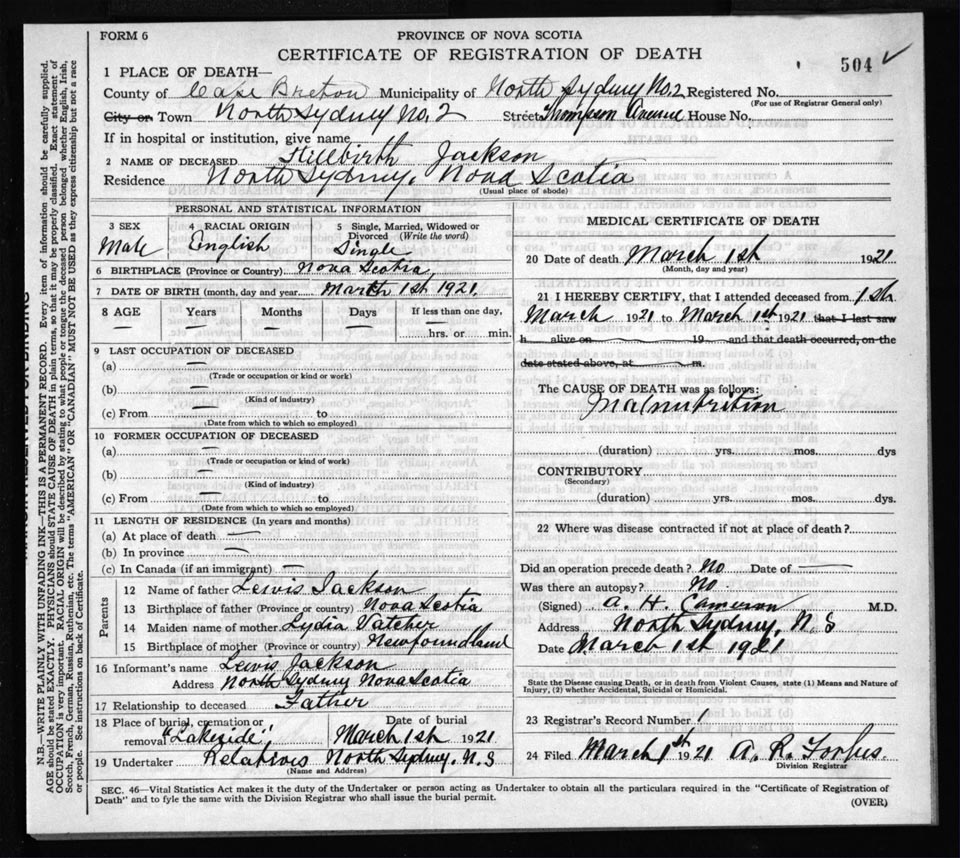 FORM 6
PROVINCE OF NOVA SCOTIA
CERTIFICATE OF REGISTRATION OF DEATH
504 ✓
1 PLACE OF DEATH—
County of Cape Breton Municipality of North Sydney No. 2 Registered No.
(For use of Registrar General only)
City or Town North Sydney No. 2 Street Thompson Avenue House No.
If in hospital or institution, give name
2 NAME OF DECEASED Stillbirth Jackson
Residence North Sydney, Nova Scotia
(Usual place of abode)
PERSONAL AND STATISTICAL INFORMATION
3 SEX Male
4 RACIAL ORIGIN English
5 Single, Married, Widowed or Divorced (Write the word) Single
6 BIRTHPLACE (Province or Country) Nova Scotia,
7 DATE OF BIRTH (month, day and year March 1st 1921.
8 AGE — Years — Months — Days — If less than one day, hrs. or min.
9 LAST OCCUPATION OF DECEASED
(a) —
(Trade or occupation or kind or work)
(b) —
(Kind of industry)
(c) From — to
(Date from which to which so employed)
10 FORMER OCCUPATION OF DECEASED
(a) —
(Trade or occupation or kind of work)
(b) —
(Kind of industry)
(c) From — to
(Date from which to which so employed)
11 LENGTH OF RESIDENCE (In years and months)
(a) At place of death —
(b) In province —
(c) In Canada (if an immigrant) —
Parents
12 Name of father Lewis Jackson
13 Birthplace of father (Province or country) Nova Scotia
14 Maiden name of mother Lydia Vatcher
15 Birthplace of mother (Province or country) Newfoundland
16 Informant's name Lewis Jackson
Address North Sydney Nova Scotia
17 Relationship to deceased Father
18 Place of burial, cremation or removal "Lakeside",
Date of burial March 1st 1921
19 Undertaker Relatives North Sydney, N. S
(Name and Address)
MEDICAL CERTIFICATE OF DEATH
20 Date of death March 1st 1921
(Month, day and year)
21 I HEREBY CERTIFY, that I attended deceased from 1st
March 1921 to March 1st 1921 that I last saw
h alive on 19 and that death occurred, on the
date stated above, at m.
The CAUSE OF DEATH was as follows:
Malnutrition
(duration) yrs. mos. dys
CONTRIBUTORY
(Secondary)
(duration) yrs. mos. dys.
22 Where was disease contracted if not at place of death?
Did an operation precede death? No Date of —
Was there an autopsy? No
(Signed) A. H. Cameron M.D.
Address North Sydney, N. S
Date March 1st 1921
State the Disease causing Death, or in death from Violent Causes, state (1) Means and Nature of
Injury, (2) whether Accidental, Suicidal or Homicidal.
23 Registrar's Record Number 1
24 Filed March 1st 1921 A. R. Forbes.
Division Registrar
SEC. 46—Vital Statistics Act makes it the duty of the Undertaker or person acting as Undertaker to obtain all the particulars required in the "Certificate of Registration of
Death" and to fyle the same with the Division Registrar who shall issue the burial permit.
(OVER)
N.B.—WRITE PLAINLY WITH UNFADING INK—THIS IS A PERMANENT RECORD. Every item of information should be carefully supplied.
AGE should be stated EXACTLY. PHYSICIANS should STATE CAUSE OF DEATH in plain terms, so that it may be properly classified. Exact statement of
OCCUPATION is very important. RACIAL ORIGIN will be described by stating to what people or tongue the deceased person belonged whether English, Irish,
Scotch, French, German, Russian, Ruthenian, etc. The terms "AMERICAN" OR "CANADIAN" MUST NOT BE USED as they express citizenship but not a race
or people. See instructions on back of Certificate.